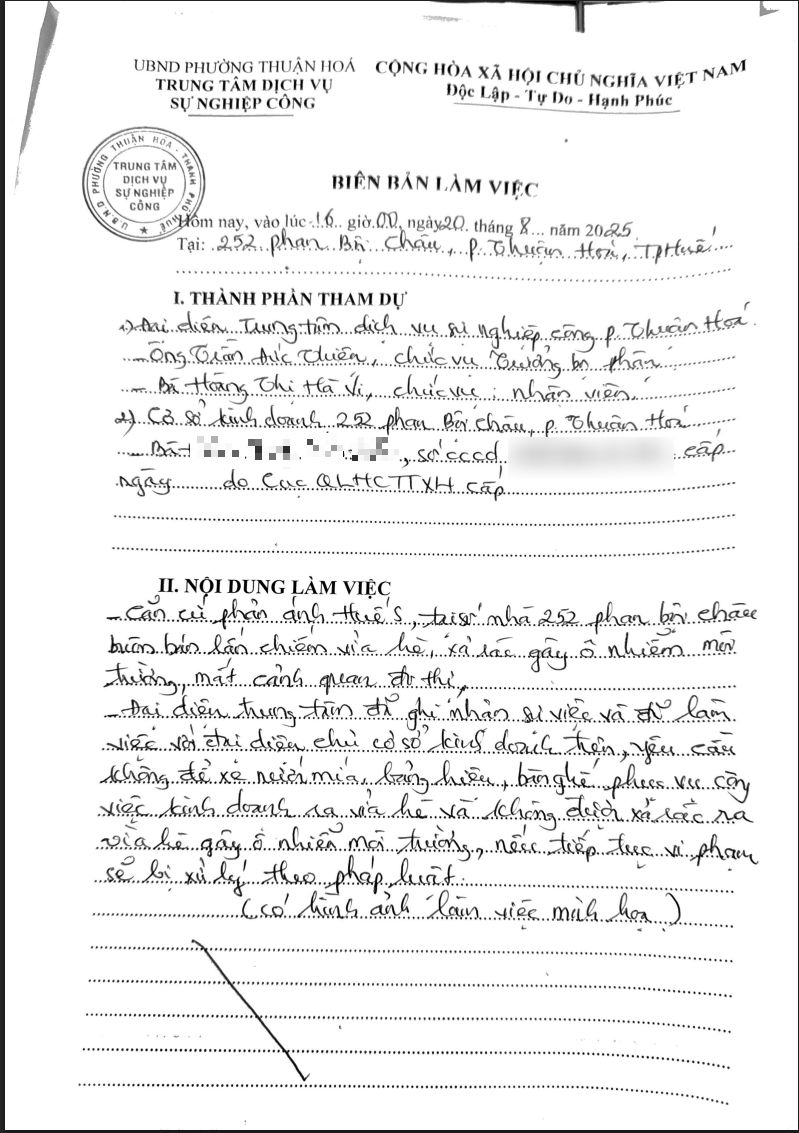 UBND PHƯỜNG THUẬN HOÁ
TRUNG TÂM DỊCH VỤ
SỰ NGHIỆP CÔNG
CỘNG HÒA XÃ HỘI CHỦ NGHĨA VIỆT NAM
Độc Lập - Tự Do - Hạnh Phúc
U.B.N.D PHƯỜNG THUẬN HOÁ - THÀNH PHỐ HUẾ
TRUNG TÂM
DỊCH VỤ
SỰ NGHIỆP
CÔNG
BIÊN BẢN LÀM VIỆC
Hôm nay, vào lúc 16 giờ 00, ngày 20 tháng 8 năm 2025
Tại: 252 phan Bội Châu, p. Thuận Hoá, TP Huế
I. THÀNH PHẦN THAM DỰ
1) Đại diện Trung tâm dịch vụ sự nghiệp công p. Thuận Hoá
- Ông Trần Đức Thiện, chức vụ Trưởng bộ phận
- Bà Hoàng Thị Hà Vi, chức vụ: nhân viên
2) Cơ sở kinh doanh 252 phan Bội châu, p. Thuận Hoá
- Bà , số cccd cấp
ngày do Cục QLHCTTXH cấp
II. NỘI DUNG LÀM VIỆC
- Căn cứ phản ánh Huế S, tại số nhà 252 phan bội châu
buôn bán lấn chiếm vỉa hè, xả rác gây ô nhiễm môi
trường, mất cảnh quan đô thị,
- Đại diện trung tâm đã ghi nhận sự việc và đã làm
việc với đại diện chủ cơ sở kinh doanh trên, yêu cầu
không để xe nước mía, bảng hiệu, bàn ghế phục vụ công
việc kinh doanh ra vỉa hè và không được xả rác ra
vỉa hè gây ô nhiễm môi trường, nếu tiếp tục vi phạm
sẽ bị xử lý theo pháp luật.
(có hình ảnh làm việc minh họa)